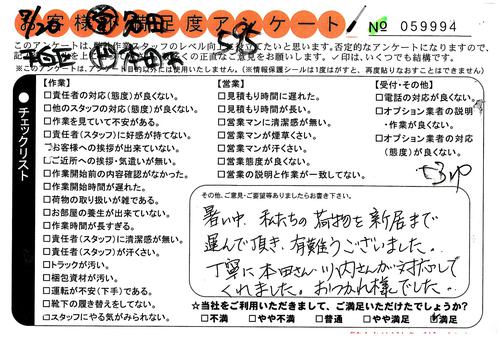 7/20
お客様満足度アンケート
№ 059994
595
このアンケートは、
※このアンケートは、アンケート目的以外には使用いたしません。(※情報保護シールは1度がすと、再度貼りなおすことはできません)
チェックリスト
【作業】
□責任者の対応(態度)が良くない。
□他のスタッフの対応(態度)が良くない。
□作業を見ていて不安がある。
□責任者(スタッフ)に好感が持てない。
□お客様への挨拶が出来ていない。
□ご近所への挨拶・気遣いが無い。
□作業開始前の内容確認がなかった。
□作業開始時間が遅れた。
□荷物の取り扱いが雑である。
□お部屋の養生が出来ていない。
□作業時間が長すぎる。
□責任者(スタッフ)に清潔感が無い。
□責任者(スタッフ)が汗くさい。
□トラックが汚い。
□梱包資材が汚い。
□運転が不安(下手)である。
□靴下の履き替えをしてない。
□スタッフにやる気がみられない。
【営業】
□見積もり時間に遅れた。
□見積もり時間が長い。
□営業マンに清潔感が無い。
□営業マンが煙草くさい。
□営業マンが汗くさい。
□営業態度が良くない。
□営業の説明と作業が一致してない。
【受付・その他】
□電話の対応が良くない。
□オプション業者の説明
・作業が良くない。
□オプション業者の対応
(態度)が良くない。
その他、ご意見・ご要望等ありましたらお書き下さい。
暑い中、私たちの荷物を新居まで
運んで頂き、有難うございました。
丁寧に本田さん、川内さんが対応して
くれました。おつかれ様でした。
☆当社をご利用いただきまして、ご満足いただけたでしょうか?
□不満 □やや不満 □普通 □やや満足 ☑満足